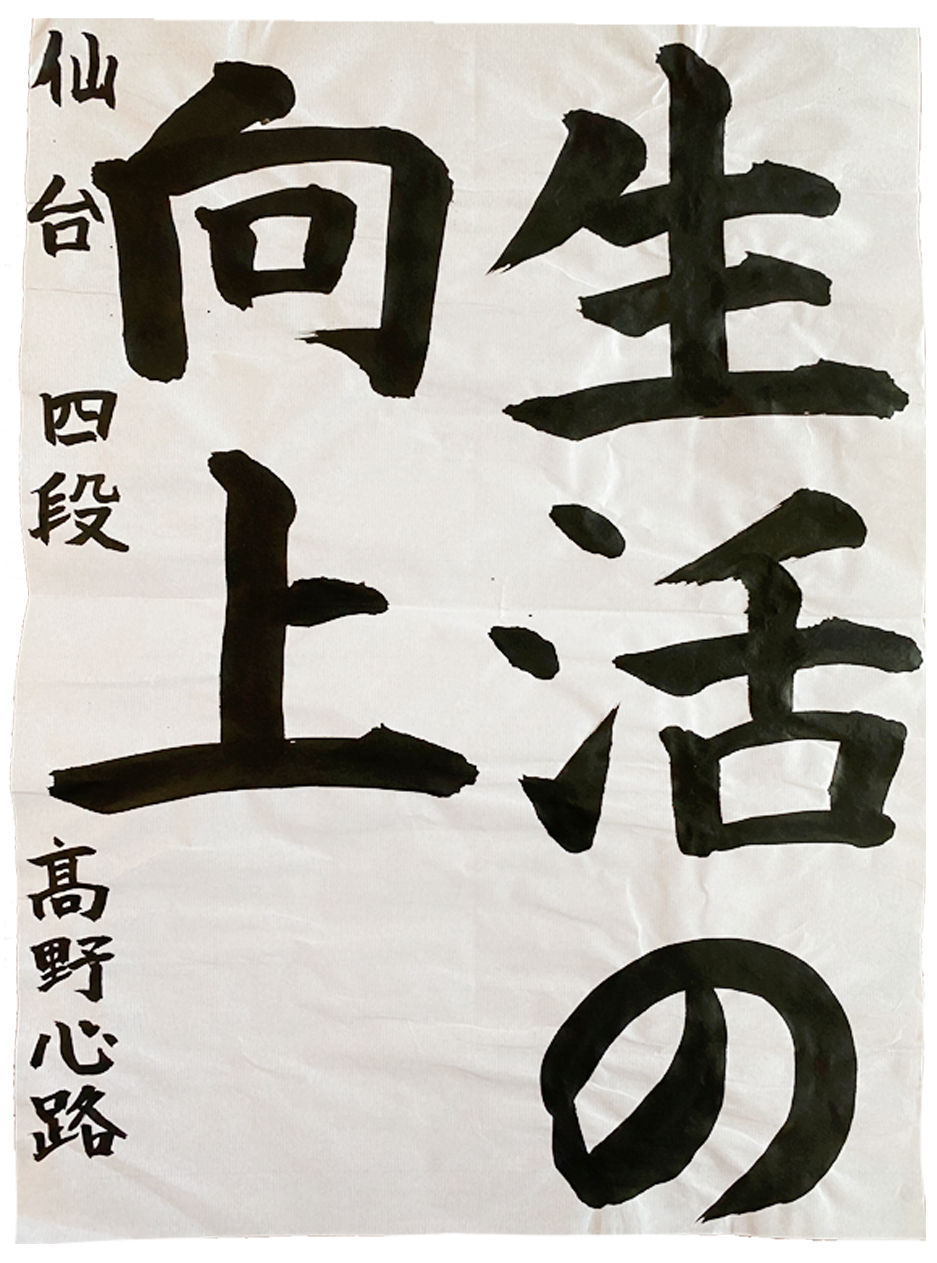 生活の
向上
仙台 四段 髙野心路